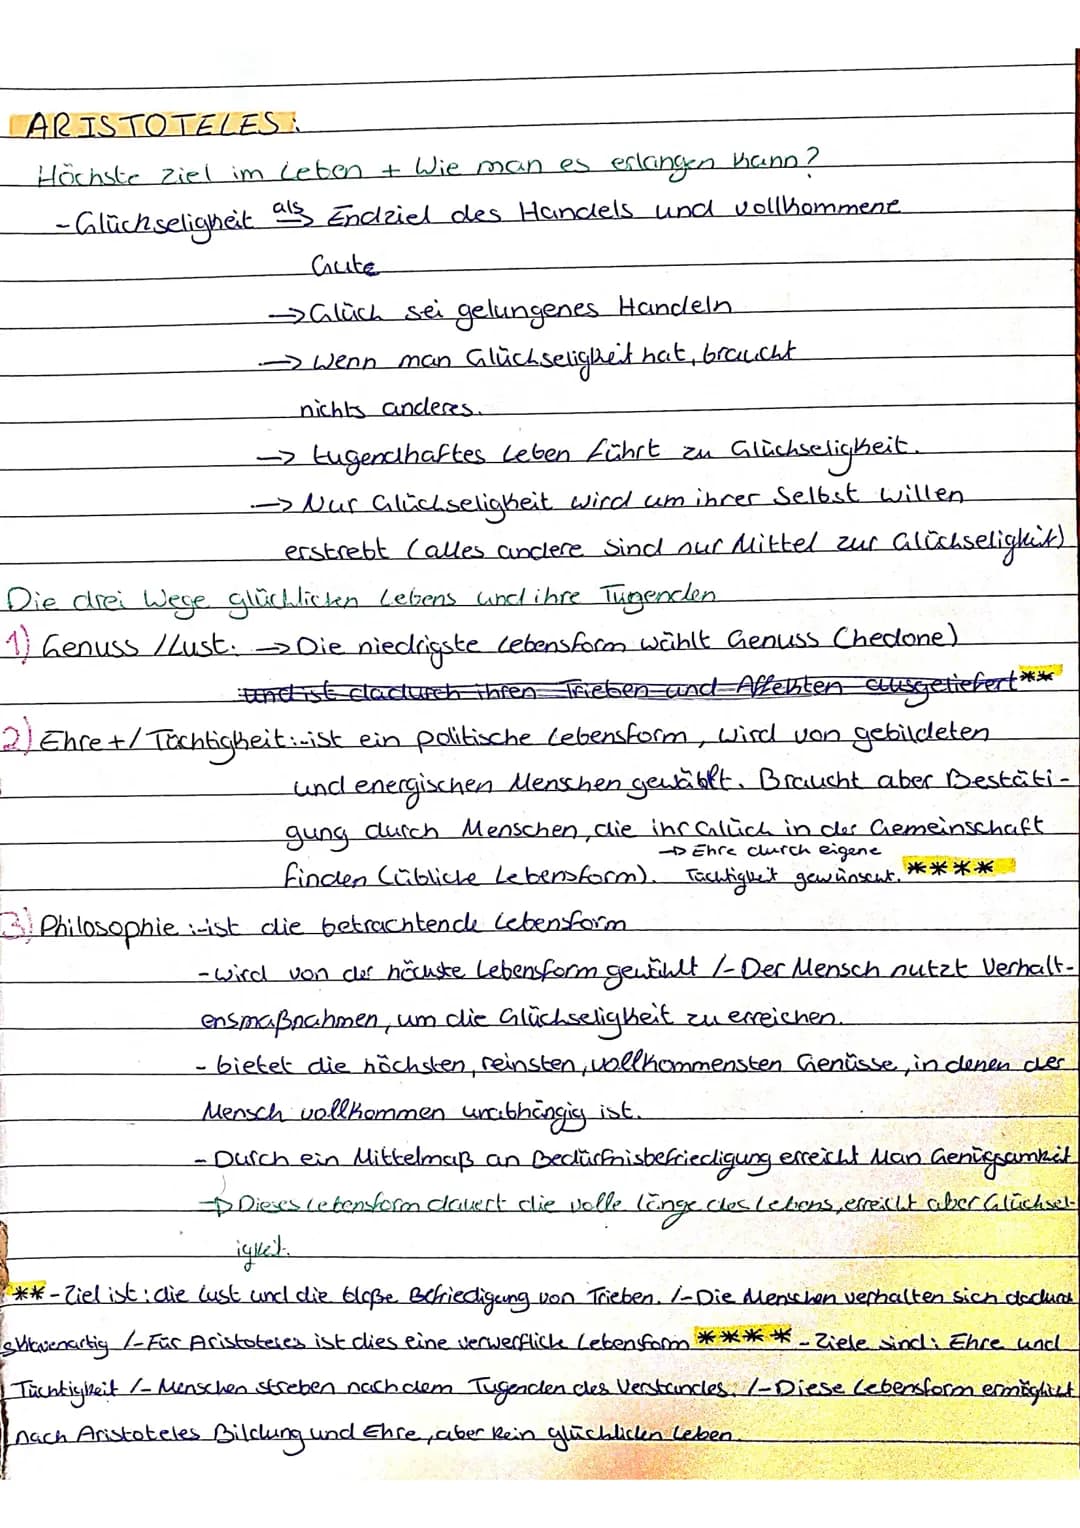 ARISTOTELES:
Höchste Ziel im Leben + Wie man es erlangen kann?
- Glückseligkeit als Endziel des Handels und vollkommene
Gute
→ Glück sei gelungenes Handeln
→ Wenn man Glückseligkeit hat, braucht
nichts anderes.
→ tugendhaftes Leben führt zu Glückseligkeit.
→ Nur Glückseligkeit wird um ihrer Selbst willen
erstrebt (alles andere sind nur Mittel zur Glückseligkeit)
Die drei Wege glücklichen Lebens und ihre Tugenden
1) Genuss / Lust: → Die niedrigste Lebensform wählt Genuss (hedone)
und ist dadurch ihren Trieben und Affekten ausgeliefert **
2) Ehre + / Tüchtigkeit: - ist ein politische Lebensform, wird von gebildeten
und energischen Menschen gewählt. Braucht aber Bestäti-
gung durch Menschen, die ihr Glück in der Gemeinschaft
→ Ehre durch eigene
finden (übliche Lebensform). Tüchtigkeit gewünscht. ****
3) Philosophie: - ist die betrachtende Lebensform
- wird von der höchste Lebensform gewählt /- Der Mensch nutzt Verhalt-
ensmaßnahmen, um die Glückseligkeit zu erreichen.
- bietet die höchsten, reinsten, vollkommensten Genüsse, in denen der
Mensch vollkommen unabhängig ist.
- Durch ein Mittelmaß an Bedürfnisbefriedigung erreicht Man Genügsamkeit
→ Dieses Lebensform dauert die volle Länge des Lebens, erreicht aber Glücksel-
igkeit.
** - Ziel ist: die Lust und die bloße Befriedigung von Trieben. /- Die Menschen verhalten sich dadurch
sklavenartig /- Für Aristoteles ist dies eine verwerflich Lebensform **** - Ziele sind: Ehre und
Tüchtigkeit /- Menschen streben nach dem Tugenden des Verstandes. /- Diese Lebensform ermöglicht
nach Aristoteles Bildung und Ehre, aber kein glücklichen Leben.